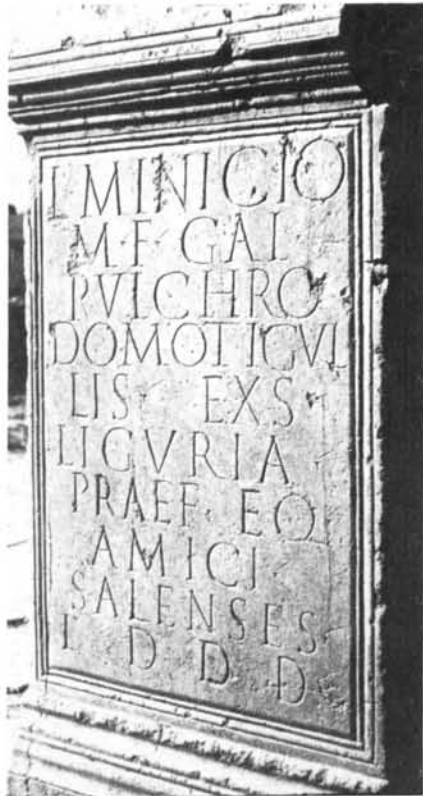 L MINICIO
M F GAL
PVLCHRO
DOMO TIGVL
LIS EXS
LIGVRIA
PRAEF · EQ
AMICI
SALENSES
L D D D